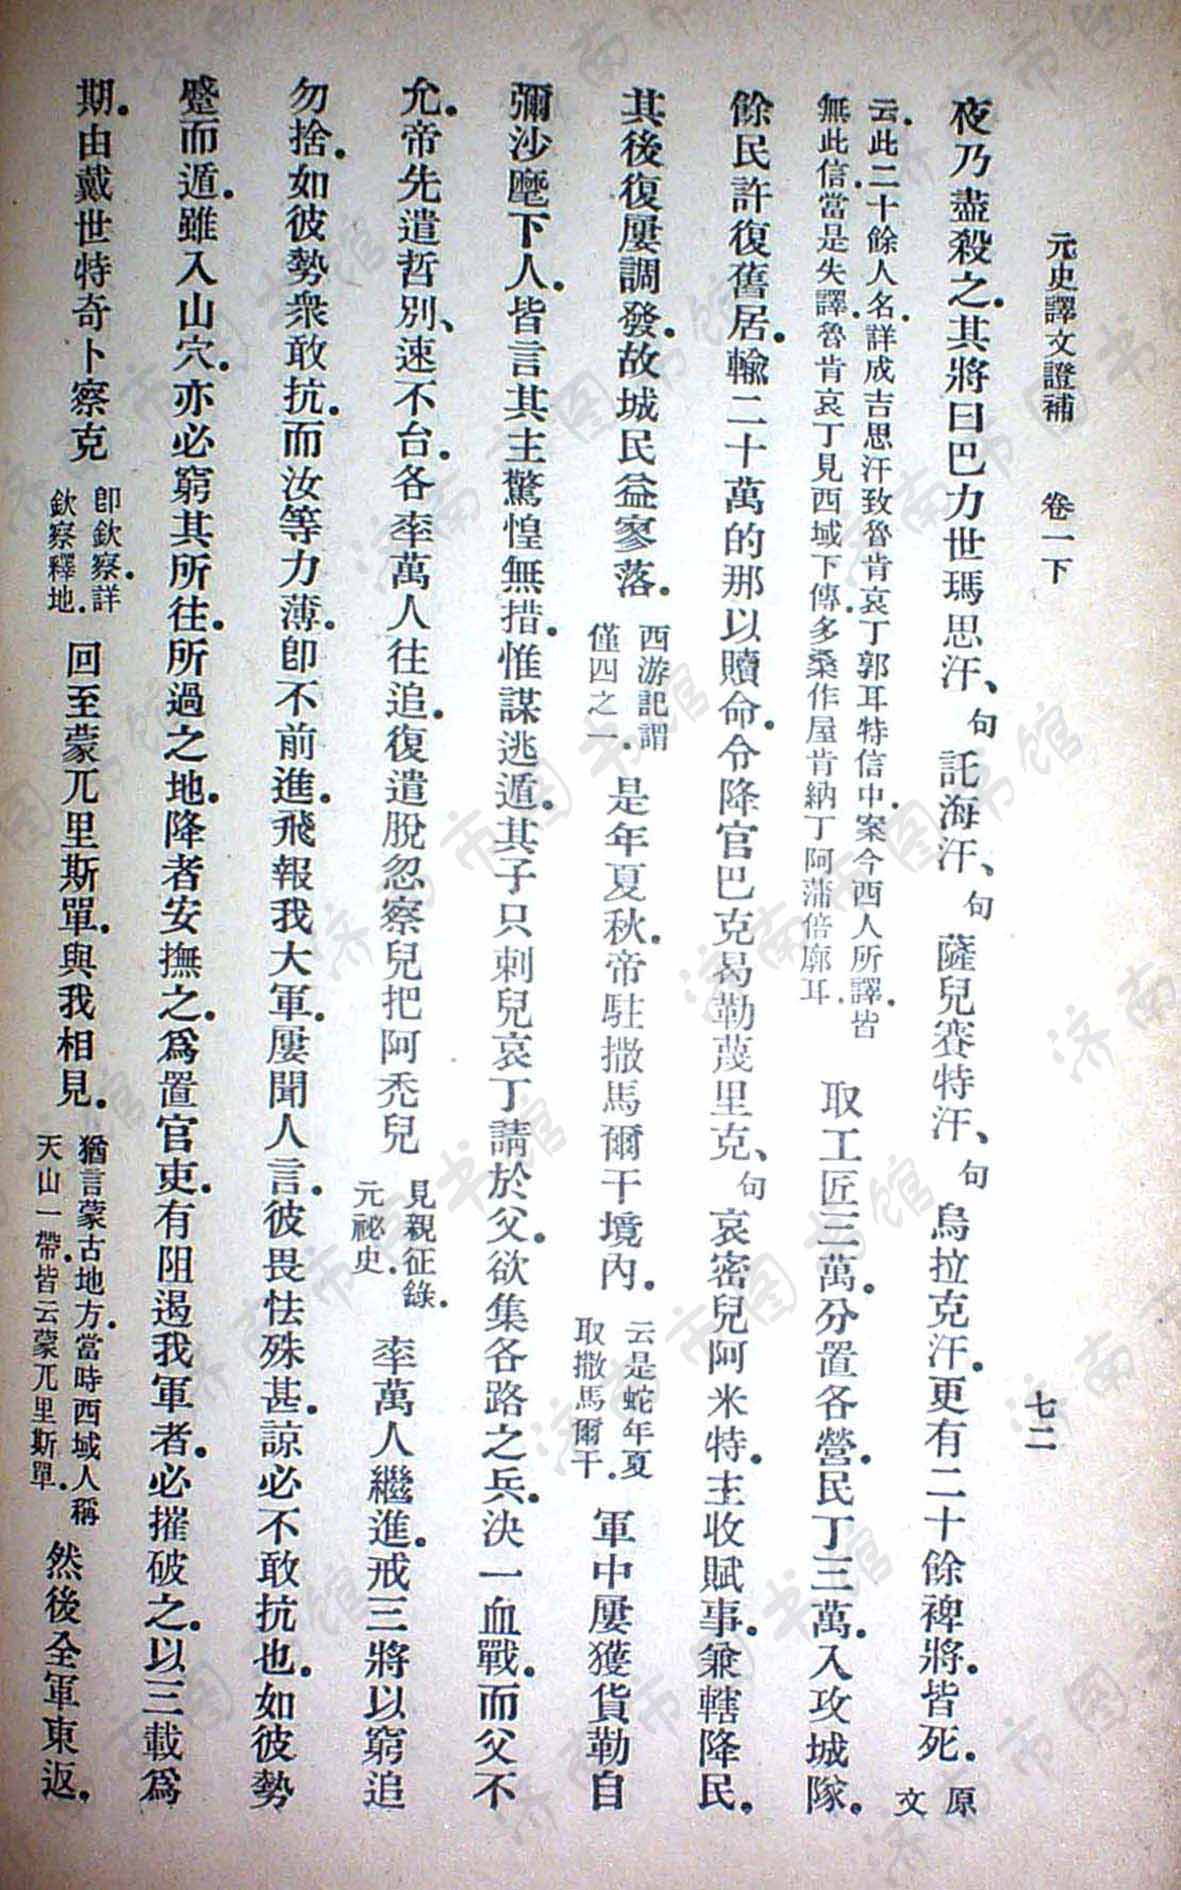 元史譯文證補　卷一下　七二
夜乃盡殺之。其將曰巴力世瑪思汗、句託海汗、句薩兒賽特汗、句烏拉克汗。更有二十餘裨將。皆死。原文
云。此二十餘人名。詳成吉思汗致魯肯哀丁郭耳特信中。案今西人所譯。皆
無此信。當是失譯。魯肯哀丁見西域下傳。多桑作屋肯納丁阿蒲倍廓耳。
取工匠三萬。分置各營。民丁三萬。入攻城隊。
餘民許復舊居。輸二十萬的那以贖命。令降官巴克曷勒蔑里克、句哀密兒阿米特。主收賦事。兼轄降民。
其後復屢調發。故城民益寥落。西游記謂僅四之一。是年夏秋。帝駐撒馬爾干境內。云是蛇年夏取撒馬爾干。軍中屢獲貨勒自
彌沙麾下人。皆言其主驚惶無措。惟謀逃遁。其子只剌兒哀丁請於父。欲集各路之兵。決一血戰。而父不
允。帝先遣哲別、速不台。各率萬人往追。復遣脫忽察兒把阿禿兒見親征錄。元祕史。率萬人繼進。戒三將以窮追
勿捨。如彼勢衆敢抗。而汝等力薄。卽不前進。飛報我大軍。屢聞人言。彼畏怯殊甚。諒必不敢抗也。如彼勢
蹙而遁。雖入山穴。亦必窮其所往。所過之地。降者安撫之。爲置官吏。有阻遏我軍者。必摧破之。以三載爲
期。由戴世特奇卜察克卽欽察。詳欽察釋地。回至蒙兀里斯單。與我相見。猶言蒙古地方。當時西域人稱天山一帶。皆云蒙兀里斯單。然後全軍東返。